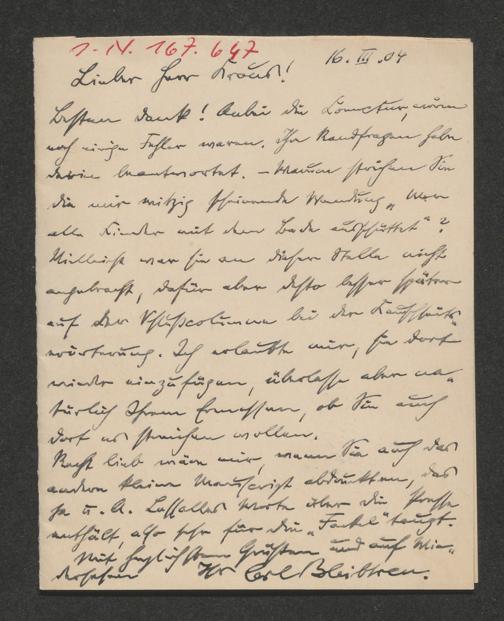 1-IV. 167.647
16. III. 04
Lieber Herr Kraus!
Besten Dank! Anbei die Correctur, worin
noch einige Fehler waren. Ihre Randfragen habe
darin beantwortet. – Warum strichen Sie
die mir witzig scheinende Wendung „Wer
alle Kinder mit dem Bade ausschüttet"?
Vielleicht war sie an dieser Stelle nicht
angebracht, dafür aber desto besser später
auf der Schlußcolumne bei der
erörterung. Ich erlaubte mir, sie dort
wieder einzufügen, überlasse aber na-
türlich Ihrem Ermessen, ob Sie auch
dort es streichen wollen.
Recht lieb wäre mir, wenn Sie auch das
andere kleine Manuscript abdruckten, das
ja u. A. Lassalles Worte über die Presse
enthält, also sehr für die „Fackel" taugt.
Mit herzlichsten Grüßen und auf Wie-
dersehen Ihr Carl Bleibtreu.